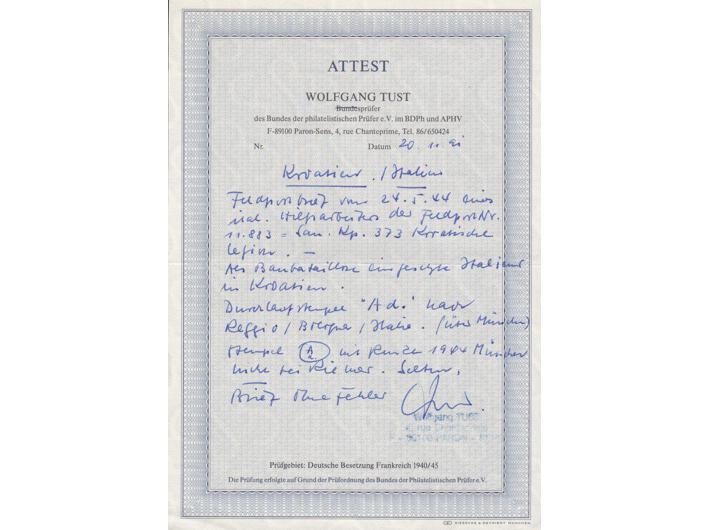 ATTEST
WOLFGANG TUST
Bundesprüfer
des Bundes der philatelistischen Prüfer e.V. im BDPh und APHV
F-89100 Paron-Sens, 4, rue Chanteprime, Tel. 86/650424
Nr. Datum 20 11 91
Kroatien / Italien
Feldpostbrief vom 24.5.44 eines
ital. Hilfsarbeiters der Feldpost Nr.
11.883 = San. Kp. 373 Kroatische
Legion. —
Als Baubataillone eingesetzte Italiener
in Kroatien.
Durchlaufstempel "Ad." nach
Reggio / Bologna / Italie. (über München)
Stempel A in 1944 München
nicht bei Riemer. Selten.
Brief ohne Fehler
Wolfgang TUST
Prüfgebiet: Deutsche Besetzung Frankreich 1940/45
Die Prüfung erfolgte auf Grund der Prüfordnung des Bundes der Philatelistischen Prüfer e.V.
GIESECKE & DEVRIENT MÜNCHEN